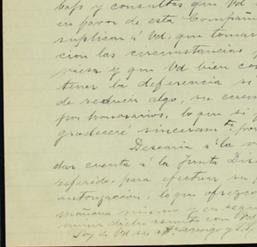 bajo y consultas que Vd
en favor de esta Compañia
suplicar á Vd. que toma
cion las circunstancias
y que Vd bien co
tener la deferencia
de reducir algo, su cuen
por honorarios, lo que si
gradeceré sinceramte, por
Desearia á la
dar cuenta á la Junta Dir
referido, para efectuar su
autorizacion, lo que ofrezco
mañana mismo
con Vd
Soy de Vd